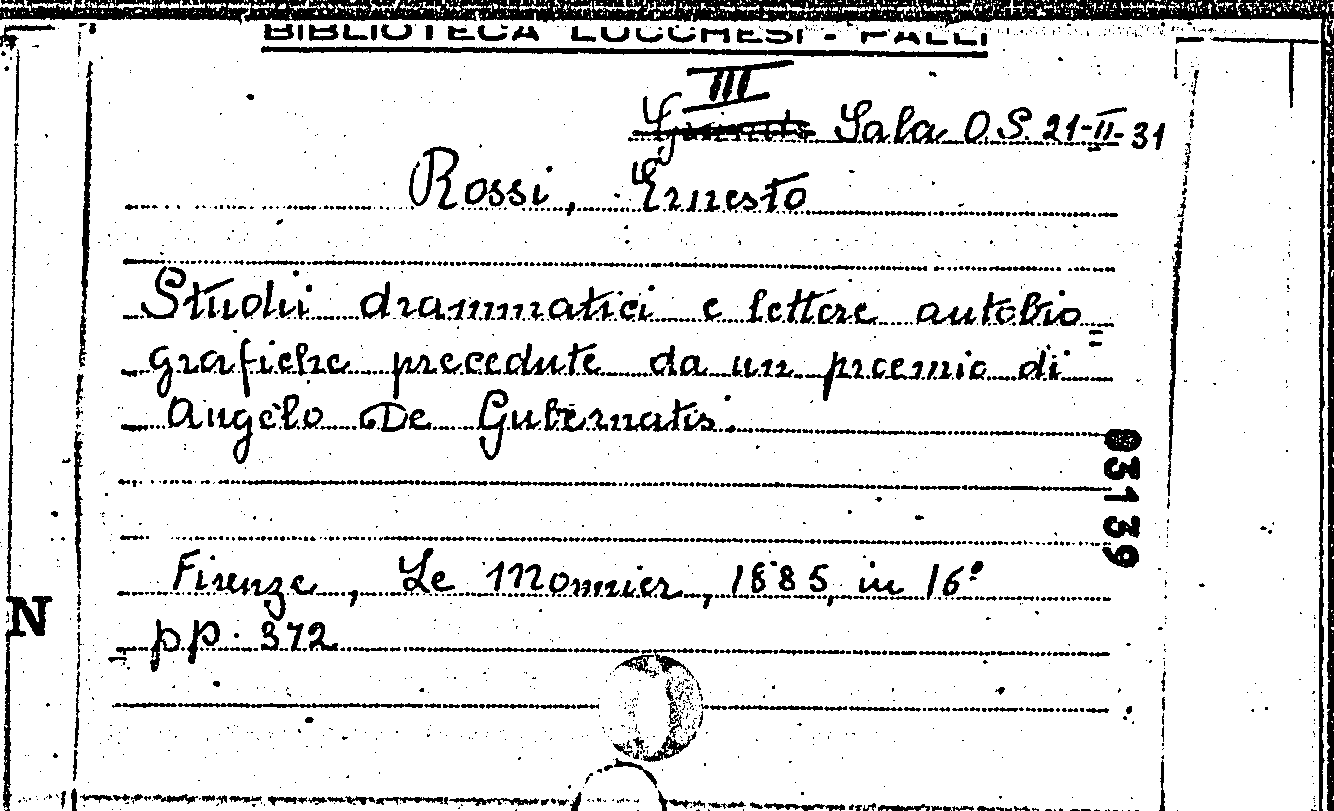 BIBLIOTECA LUCCHESI - PALLI
III
Sala O.S. 21-II-31
Rossi, Ernesto
Studii drammatici e lettere autobio=
grafiche precedute da un proemio di
Angelo De Gubernatis.
03139
Firenze, Le Monnier, 1885, in 16º
N
pp. 372